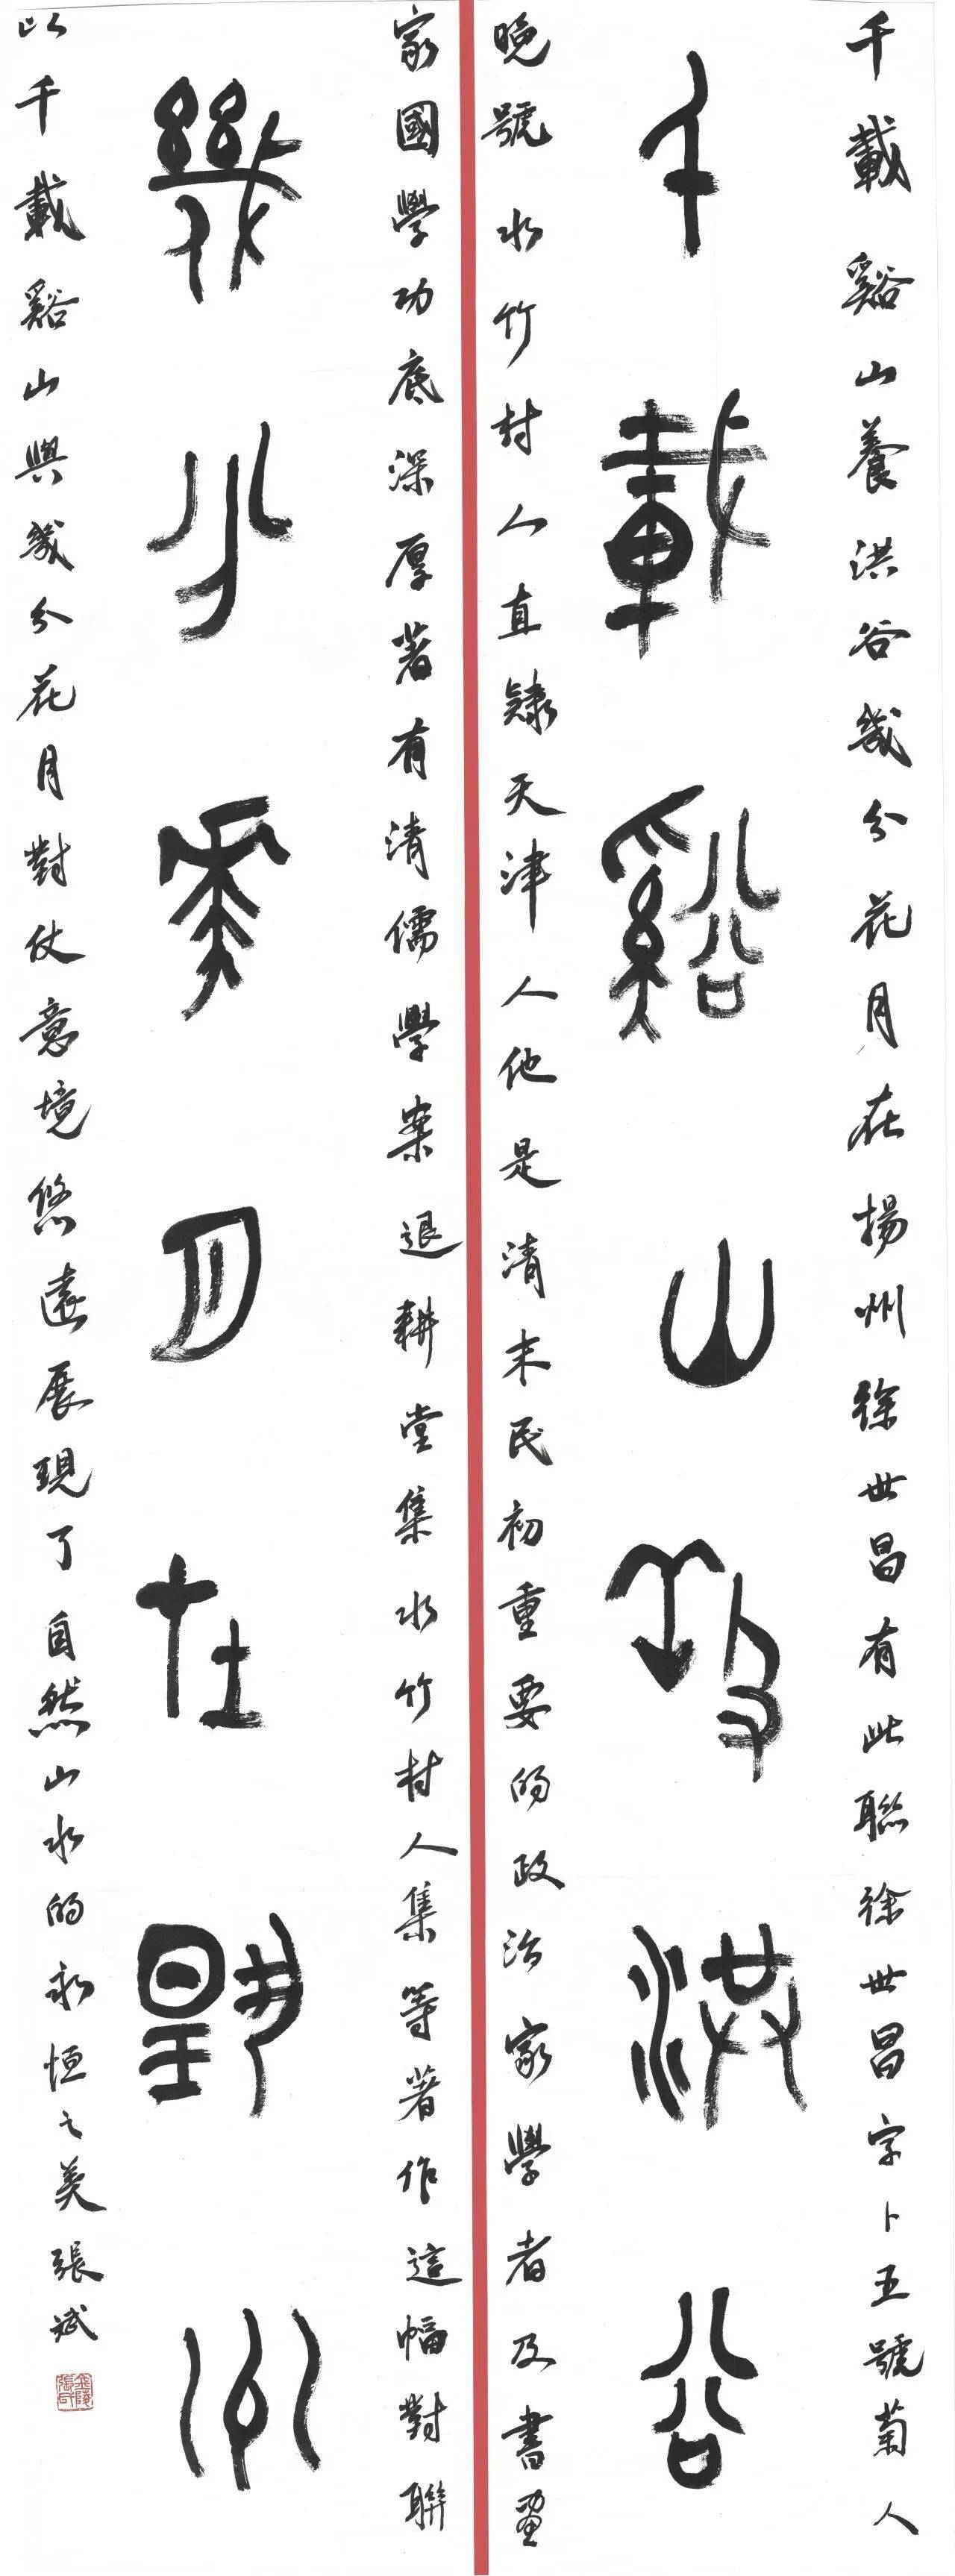 千載谿山養洪谷幾分花月在揚州徐世昌有此聯徐世昌字卜五號菊人
千載谿山養洪谷
晚號水竹村人直隸天津人他是清末民初重要的政治家學者及書畫
家國學功底深厚著有清儒學案退耕堂集水竹村人集等著作這幅對聯
幾分花月在揚州
以千載谿山與幾分花月對仗意境悠遠展現了自然山水的永恒之美張斌